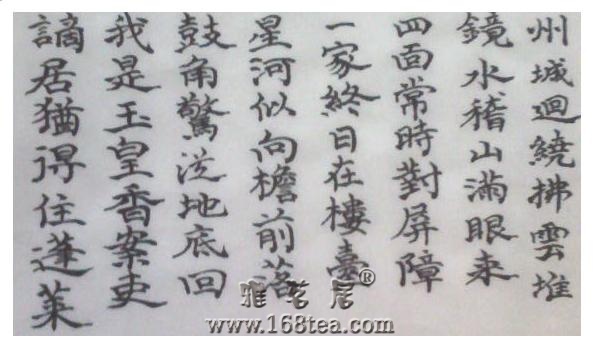 州城迴繞拂雲堆
鏡水稽山滿眼來
四面常時對屏障
一家終日在樓臺
星河似向檐前落
鼓角驚從地底回
我是玉皇香案吏
謫居猶得住蓬萊
雅茗居®
www.168tea.com